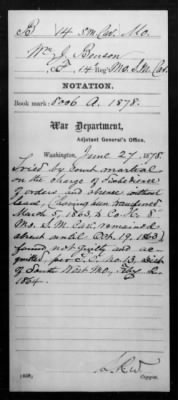 B 14 S.M. Cav. Mo.
Wm. J. Benson
14 Reg. Mo. S.M. Cav.
NOTATION.
Book mark: 5006 A. 1878.
War Department,
Adjutant General's Office,
Washington, June 27, 1878.
Tried by Court martial
on the charge of disobedience
of orders and absence without
leave, (having been transferred
March 5, 1863, to Co. F. 8"
Mo. S.M. Cav., remained
absent until Oct. 19, 1863)
found not guilty and ac-
quitted per S.O. No. 13, Dist.
of South West Mo., Feby 2
1864.
(658)
Copyist.